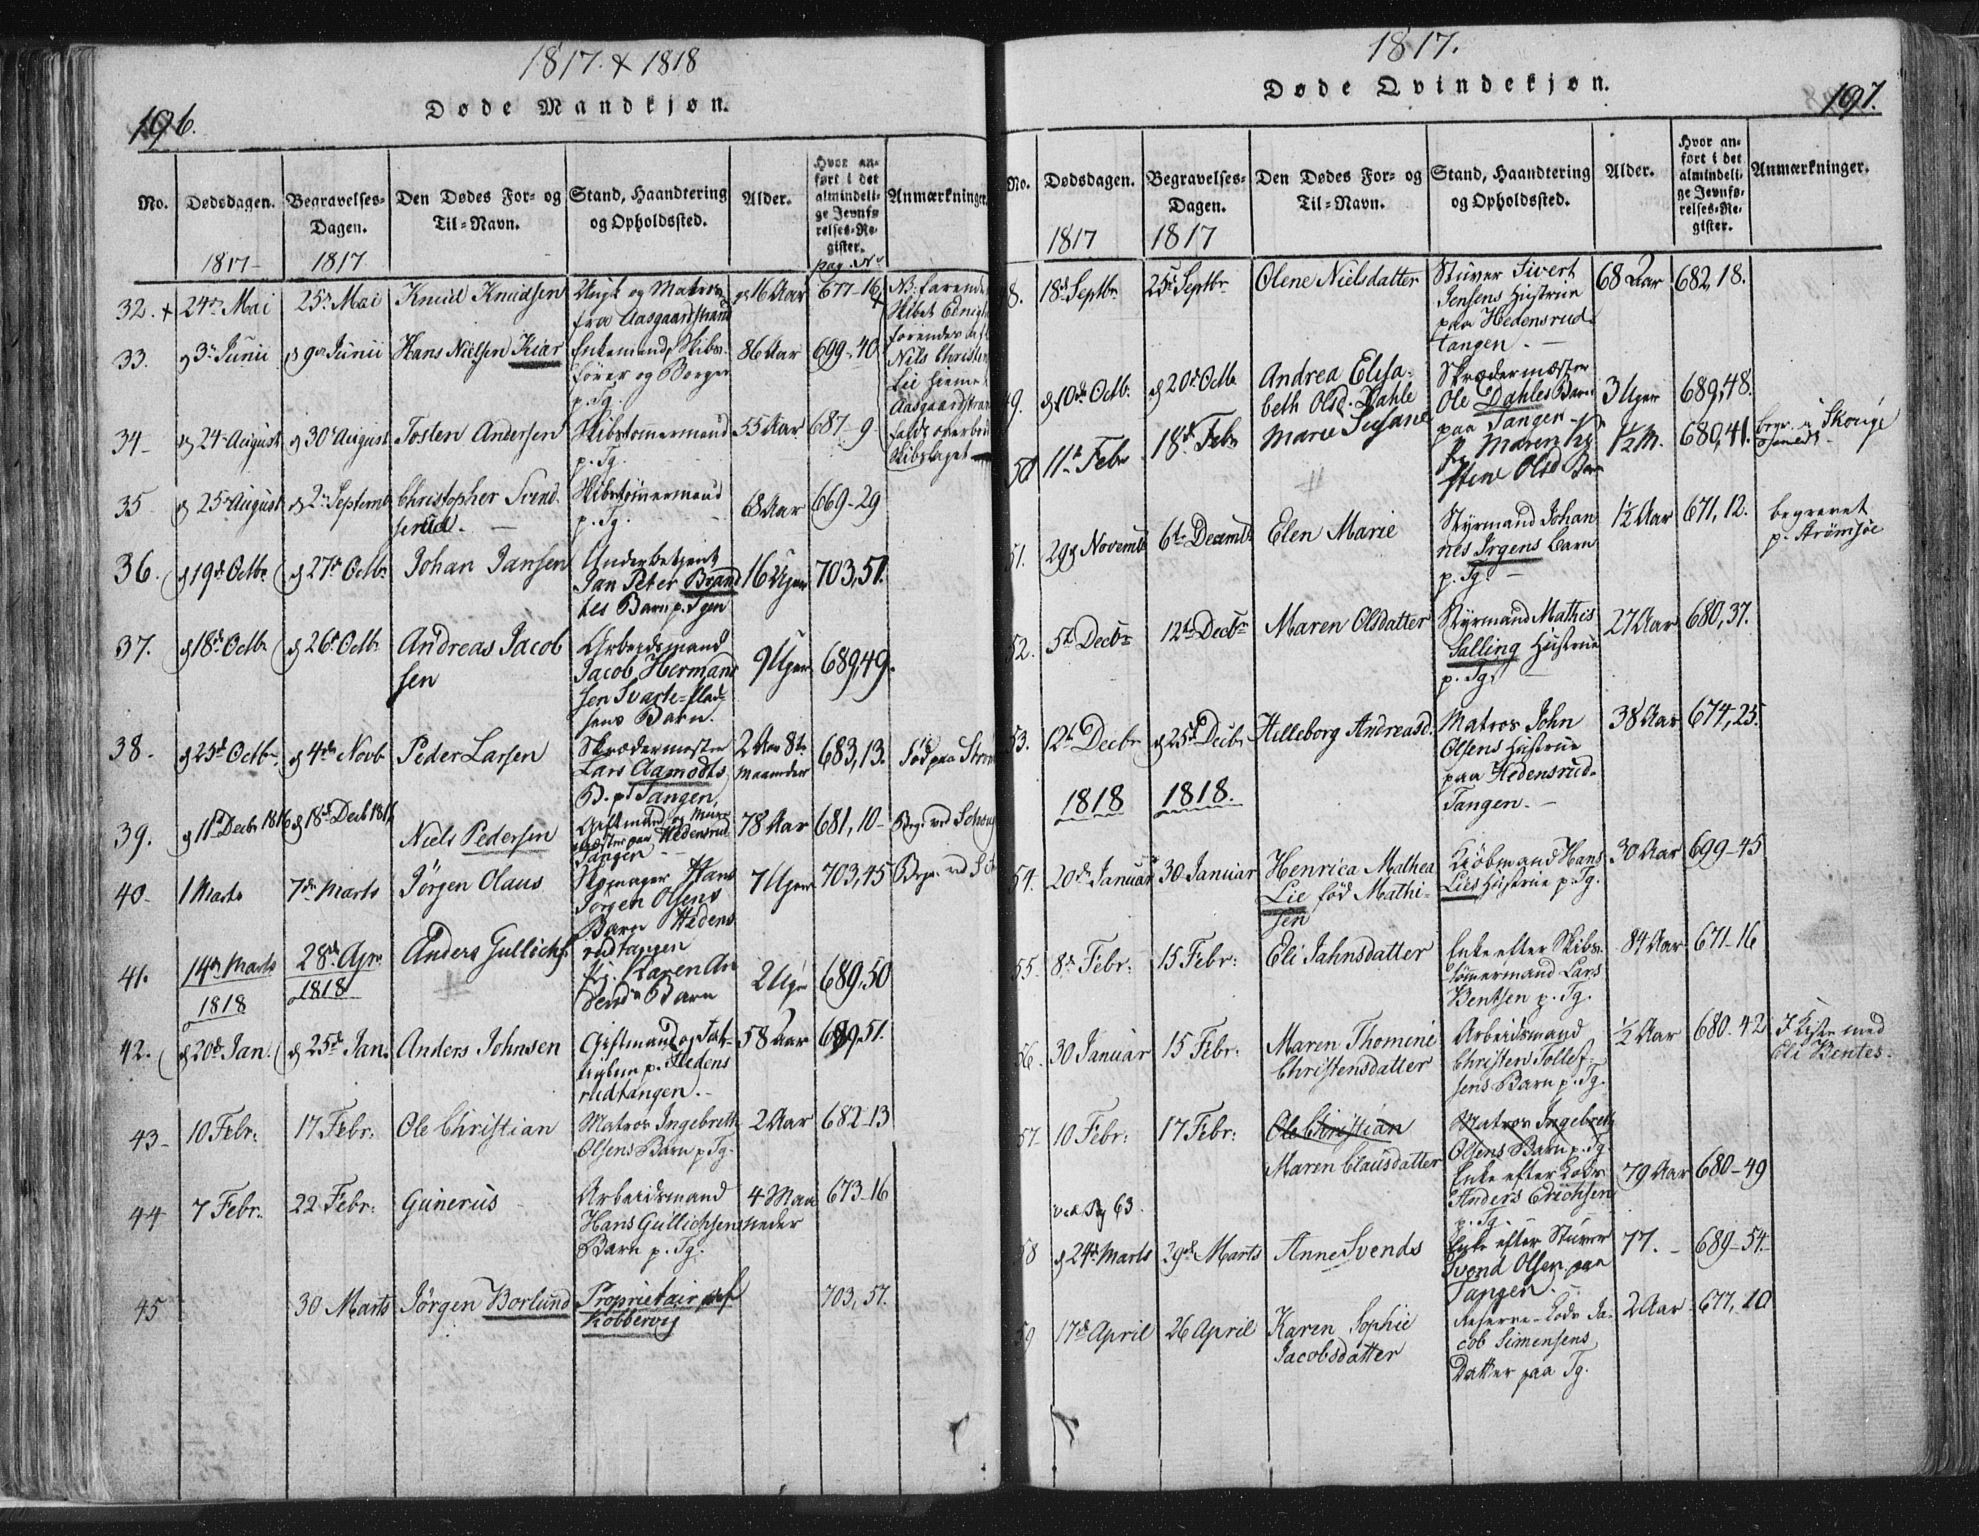 1817 & 1818
196.
Døde Mandkjøn.
No.
Dødsdagen.
Begravelses-
Dagen.
Den Dødes For- og
Til-Navn.
Stand, Haandtering
og Opholdssted.
Alder.
Hvor an-
ført i det
almindeli-
ge Jevnfø-
relses-Re-
gister.
Anmærkninger.
1817
1817
pag. Nr
32. 24 Mai 25 Mai Knud Knudsen
fra Aasgaardstrand
16 Aar 677-16
33. 3 Junii 9 Junii Hans Nielsen Kiar
Enkemand, Skibs-
fører og Borger
p. Tg.
86 Aar 699-40
34 24 August 30 August Tosten Andersen
Skibstømmermand
p. Tg.
55 Aar 687-9
Aasgaardstrand
35 25 August 2 Septemb Christopher Svend-
Skibstømmermand
p. Tg.
Aar 669-29
36. 19de Octbr 27de Octbr Johan Jansen
Underbetjent
Jan Peter Brand
tes Barn p. Tgen
16 Uger 703, 51.
37. 18de Octbr 26de Octbr Andreas Jacob
sen
Arbeidsmand
Jacob Hermand
sen
Barn.
9 Uger 689, 49.
38. 25de Octbr 4de Novb Peder Larsen
Skrædermester
Lars Aamodts
B. p. Tangen
2 Aar 8te
Maaneder
683, 13. Fød paa
39. 11te Decbr 1816 18de Decb 1816
Niels Pedersen
Giftmand og Muur
mester paa Hedensrud
Tangen
78 Aar 681, 10
40. 1 Marts 7de Marts Jörgen Olaus
Hans
Jorgen Olsens
Barn Hedens
rudtangen
7 Uger 703, 45
41. 14de Marts 28de Apr. Anders Gullichs.
1818 1818
Karen An
Barn
2 Uger 689, 50
42. 20de Jan. 25de Jan. Anders Johnsen
Giftmand og
p. Hedens
rudtangen.
58 Aar 689. 51.
43 10 Febr: 17 Febr: Ole Christian
Matros Ingebreth
Olsens Barn p Tg.
2 Aar 682-13
44 7 Febr. 22 Febr: Gunerus
Arbeidsmand
Hans Gullichsens
Barn p. Tg.
4 Maa
neder
673-16
45 30 Marts Jörgen Borlund
Proprietair af
Kobbervig
703, 57.
1817.
Døde Qvindekjøn.
197.
No.
Dødsdagen.
Begravelses-
Dagen.
Den Dødes For- og
Til-Navn.
Stand, Haandtering
og Opholdssted.
Alder.
Hvor an-
ført i det
almindeli-
ge Jevnfø-
relses-Re-
gister.
Anmærkninger.
1817
1817
18 Septbr 25 Septbr Olene Nielsdatter
Stuver Sivert
Jensens Hustrue
paa Hedensrud-
tangen.
68 Aar 682, 18.
10de Octb. 20de Octb. Andrea Elisa-
beth Olsd. Dahle
Skrædermester
Ole Dahles Barn
paa Tangen
3 Uger 689, 48.
50 11te Febr 18de Febr Marie Susane
Maren
Olsd Barn
1½ M. 680, 41.
51. 29 Novemb 6te Decemb Elen Marie
Styrmand Johan
nes Irgens Barn
p. Tg.
1½ Aar 671, 12. begravet
p. Strømsøe
52. 5te Decbr 12te Decbr Maren Olsdatter
Styrmand Mathis
Salling Hustrue
p. Tg.
27 Aar 680, 37.
53. 12te Decbr 25de Decbr Hilleborg Andreasd.
Matros John
Olsens Hustrue
paa Hedensrud-
Tangen.
38 Aar 674, 25.
1818 1818.
54. 20de Januar 30 Januar Henrica Mathea
Lie fød Mathi-
sen
Kiöbmand Hans
Lies Hustrue p. Tg.
30 Aar 699-45
55. 8de Febr: 15 Febr: Eli Jahnsdatter
Enke efter Skibs-
tømmermand Lars
Bentsen p. Tg.
84 Aar 671-16
56. 30 Januar 15 Febr: Maren Thomine
Christensdatter
Arbeidsmand
Christen Tollef-
sens Barn p. Tg.
½ Aar 680-42 I Kiste med
Eli Bentes.
57 10 Febr: 17 Febr: Ole Christian
Matros Ingebreth
Olsens Barn p. Tg.
Maren Clausdatter
Enke efter
Anders Erichsen
p. Tg.
79 Aar 680-49
ved Pg 63.
58 24 Marts 29de Marts Anne Svends
Enke efter Stuver
Svend Olsen paa
Tangen.
77. 689-54
59 17de April 26 April Karen Sophie
Jacobsdatter
Reserve-Lods Ja-
cob Simensens
Datter paa Tg.
2 Aar 677, 20